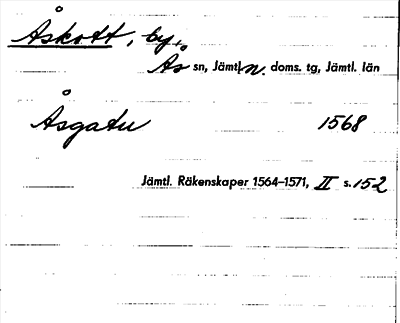 Åskott, by,
Ås sn, Jämtl. n. doms. tg, Jämtl. län
Åsgatu 1568
Jämtl. Räkenskaper 1564–1571, II s. 152